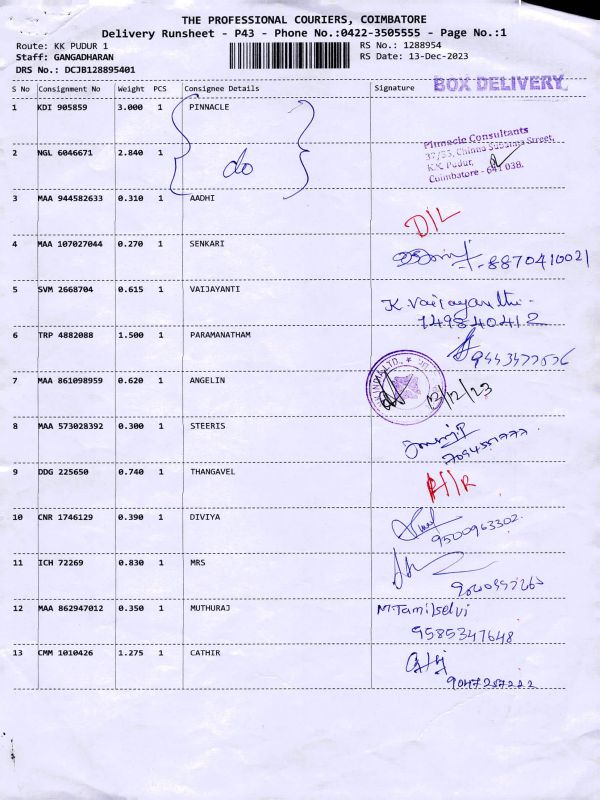 THE PROFESSIONAL COURIERS, COIMBATORE
Delivery Runsheet - P43 - Phone No.:0422-3505555 - Page No.:1
Route: KK PUDUR 1 RS No.: 1288954
Staff: GANGADHARAN RS Date: 13-Dec-2023
DRS No.: DCJB128895401
BOX DELIVERY
S No Consignment No Weight PCS Consignee Details Signature
1 KDI 905859 3.000 1 PINNACLE
Pinnacle Consultants
37/55, Chinna Subanna Street,
2 NGL 6046671 2.840 1 do K.K. Pudur,
Coimbatore - 641 038.
3 MAA 944582633 0.310 1 AADHI D/L
4 MAA 107027044 0.270 1 SENKARI 8870410021
5 SVM 2668704 0.615 1 VAIJAYANTI K. Vaijayanthi
7498404412
6 TRP 4882088 1.500 1 PARAMANATHAM
7 MAA 861098959 0.620 1 ANGELIN 13/12/23
8 MAA 573028392 0.300 1 STEERIS
9 DDG 225650 0.740 1 THANGAVEL
10 CNR 1746129 0.390 1 DIVIYA 9500963302
11 ICH 72269 0.830 1 MRS
12 MAA 862947012 0.350 1 MUTHURAJ M Tamilselvi
9585347648
13 CMM 1010426 1.275 1 CATHIR
9047287222